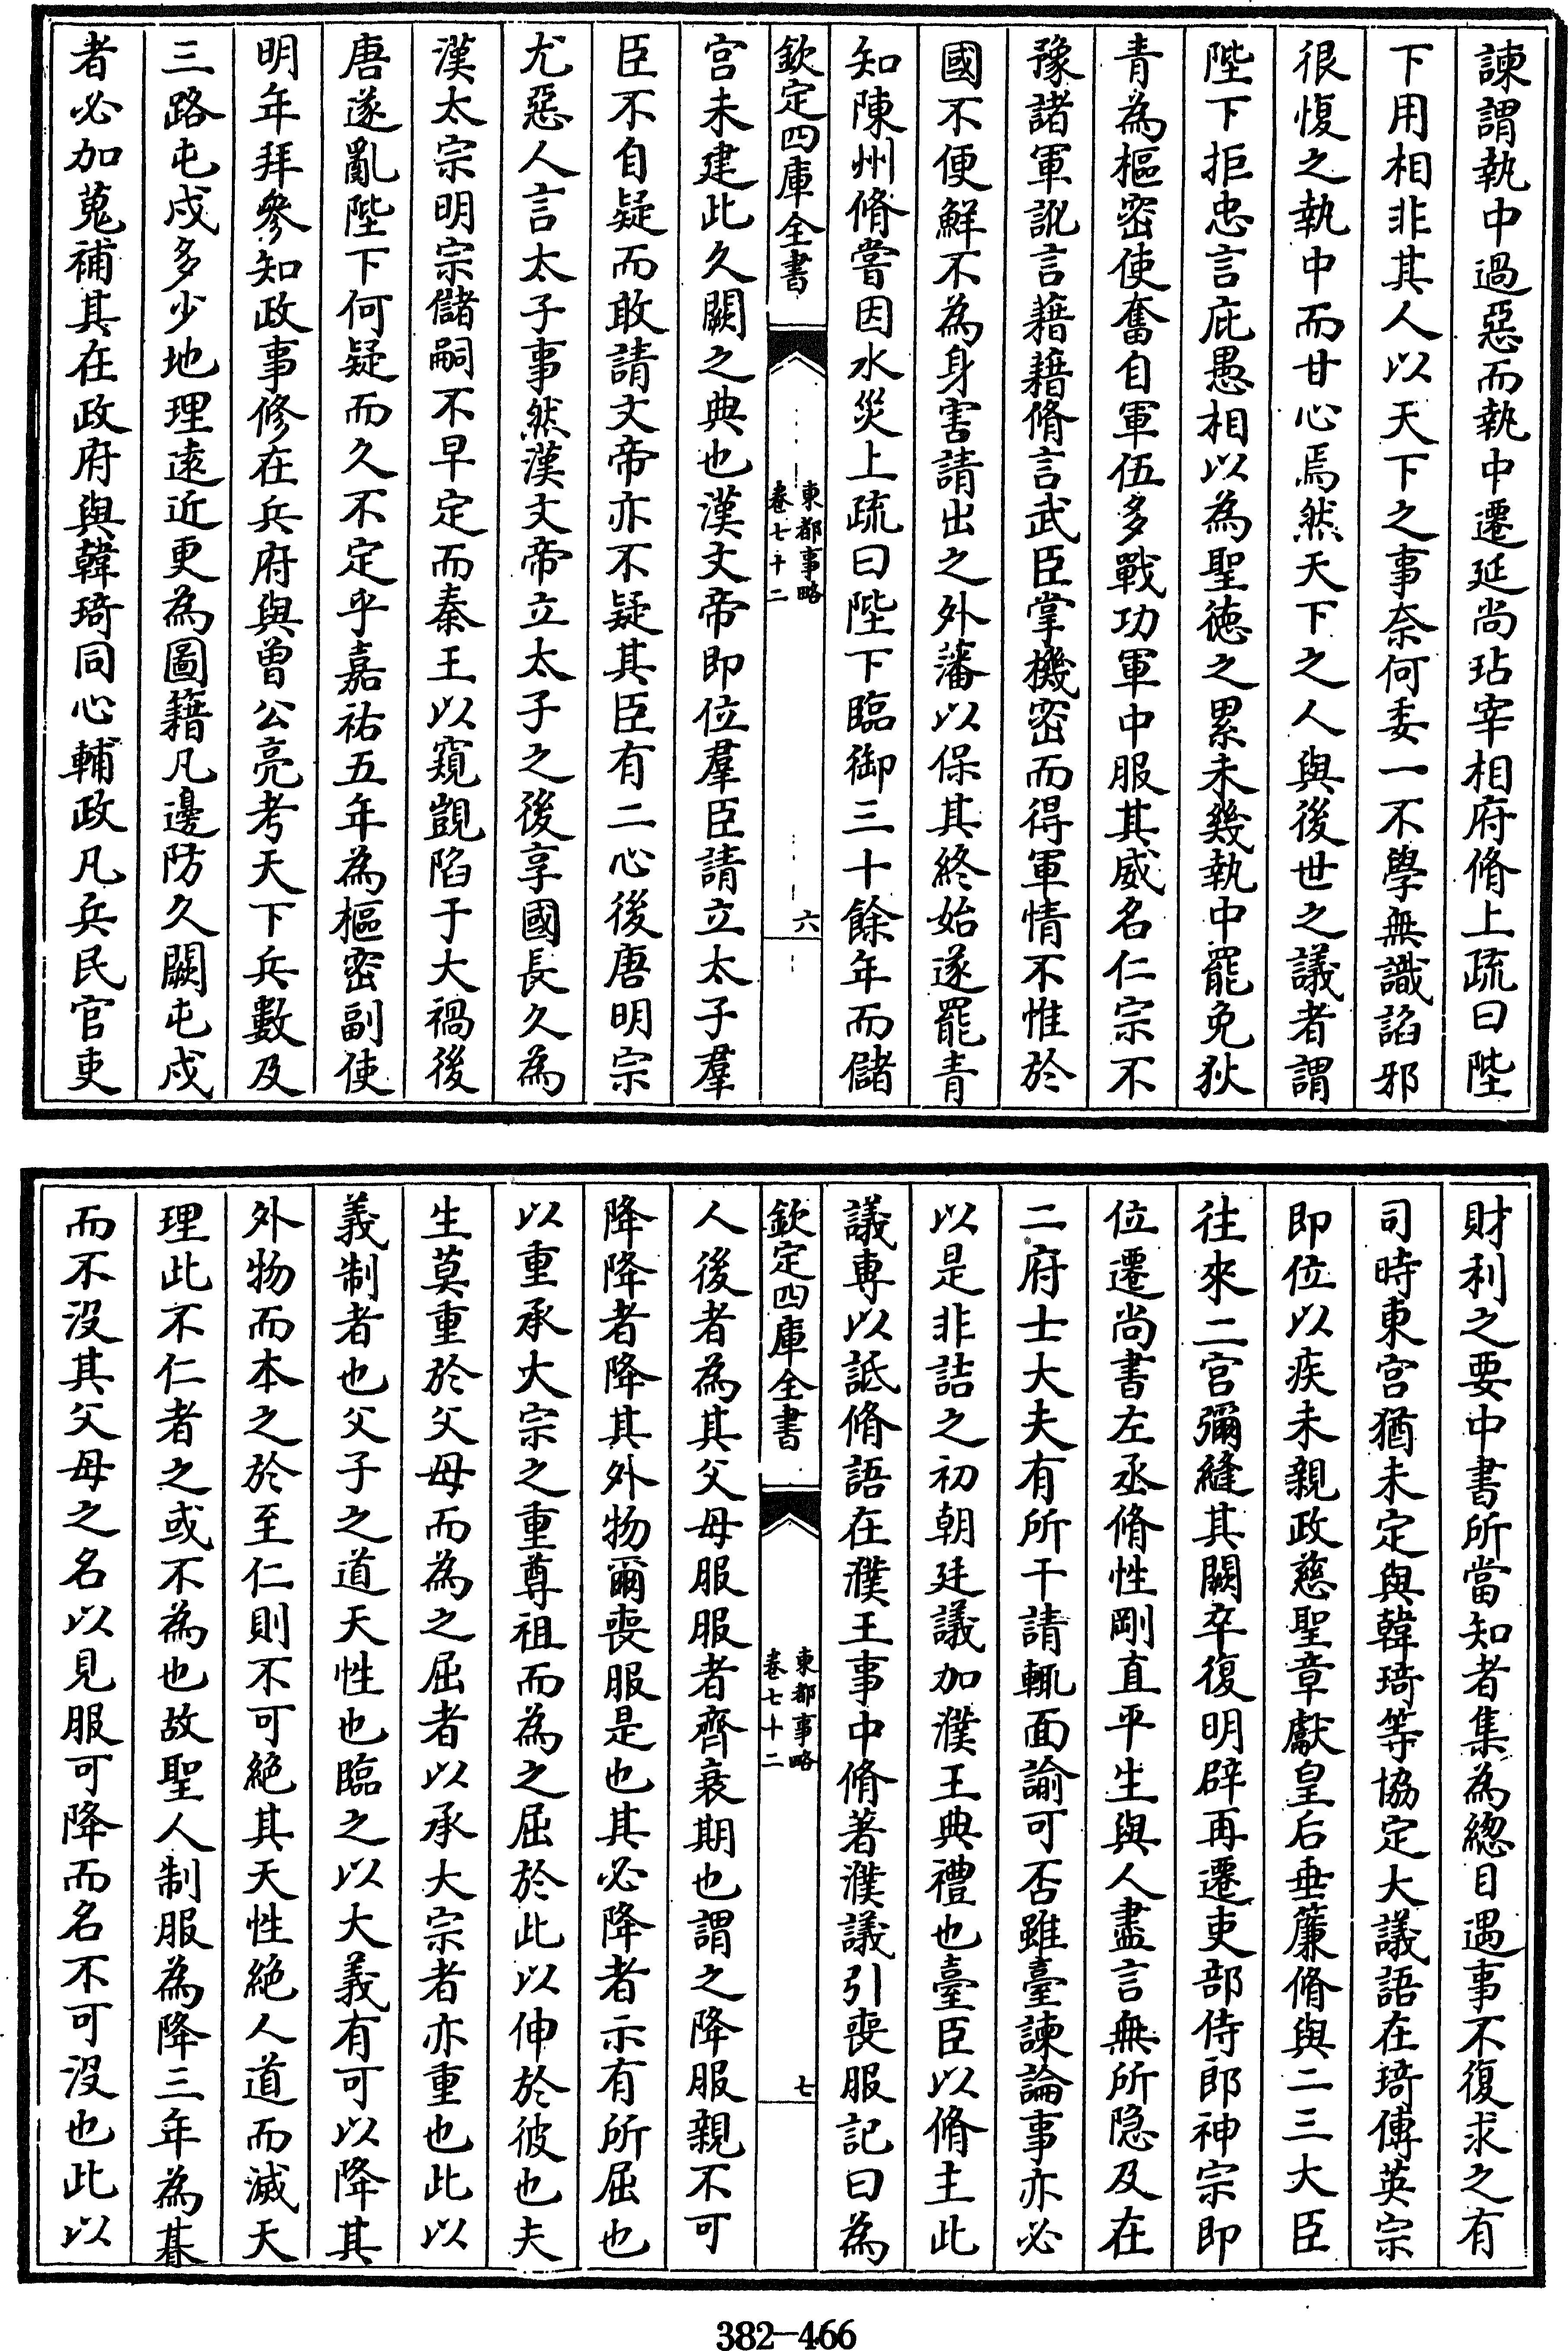 諫謂執中過惡而執中遷延尚玷宰相府脩上疏曰陛
下用相非其人以天下之事奈何委一不學無識諂邪
很愎之執中而甘心焉然天下之人與後世之議者謂
陛下拒忠言庇愚相以為聖徳之累未幾執中罷免狄
青為樞密使奮自軍伍多戰功軍中服其威名仁宗不
豫諸軍訛言藉藉脩言武臣掌機密而得軍情不惟於
國不便鮮不為身害請出之外藩以保其終始遂罷青
知陳州脩嘗因水災上疏曰陛下臨御三十餘年而儲
欽定四庫全書
東都事略
卷七十二
六
宮未建此久闕之典也漢文帝即位羣臣請立太子羣
臣不自疑而敢請文帝亦不疑其臣有二心後唐明宗
尤惡人言太子事然漢文帝立太子之後享國長久為
漢太宗明宗儲嗣不早定而秦王以窺覬陷于大禍後
唐遂亂陛下何疑而久不定乎嘉祐五年為樞密副使
明年拜參知政事修在兵府與曾公亮考天下兵數及
三路屯戍多少地理遠近更為圖籍凡邊防久闕屯戍
者必加蒐補其在政府與韓琦同心輔政凡兵民官吏
財利之要中書所當知者集為總目遇事不復求之有
司時東宮猶未定與韓琦等協定大議語在琦傳英宗
即位以疾未親政慈聖章獻皇后垂簾脩與二三大臣
往來二宮彌縫其闕卒復明辟再遷吏部侍郎神宗即
位遷尚書左丞脩性剛直平生與人盡言無所隠及在
二府士大夫有所干請輒面諭可否雖臺諫論事亦必
以是非詰之初朝廷議加濮王典禮也臺臣以脩主此
議專以詆脩語在濮王事中脩著濮議引喪服記曰為
欽定四庫全書
東都事略
卷七十二
七
人後者為其父母服服者齊衰期也謂之降服親不可
降降者降其外物爾喪服是也其必降者示有所屈也
以重承大宗之重尊祖而為之屈於此以伸於彼也夫
生莫重於父母而為之屈者以承大宗者亦重也此以
義制者也父子之道天性也臨之以大義有可以降其
外物而本之於至仁則不可絶其天性絶人道而滅天
理此不仁者之或不為也故聖人制服為降三年為朞
而不沒其父母之名以見服可降而名不可沒也此以
382-466